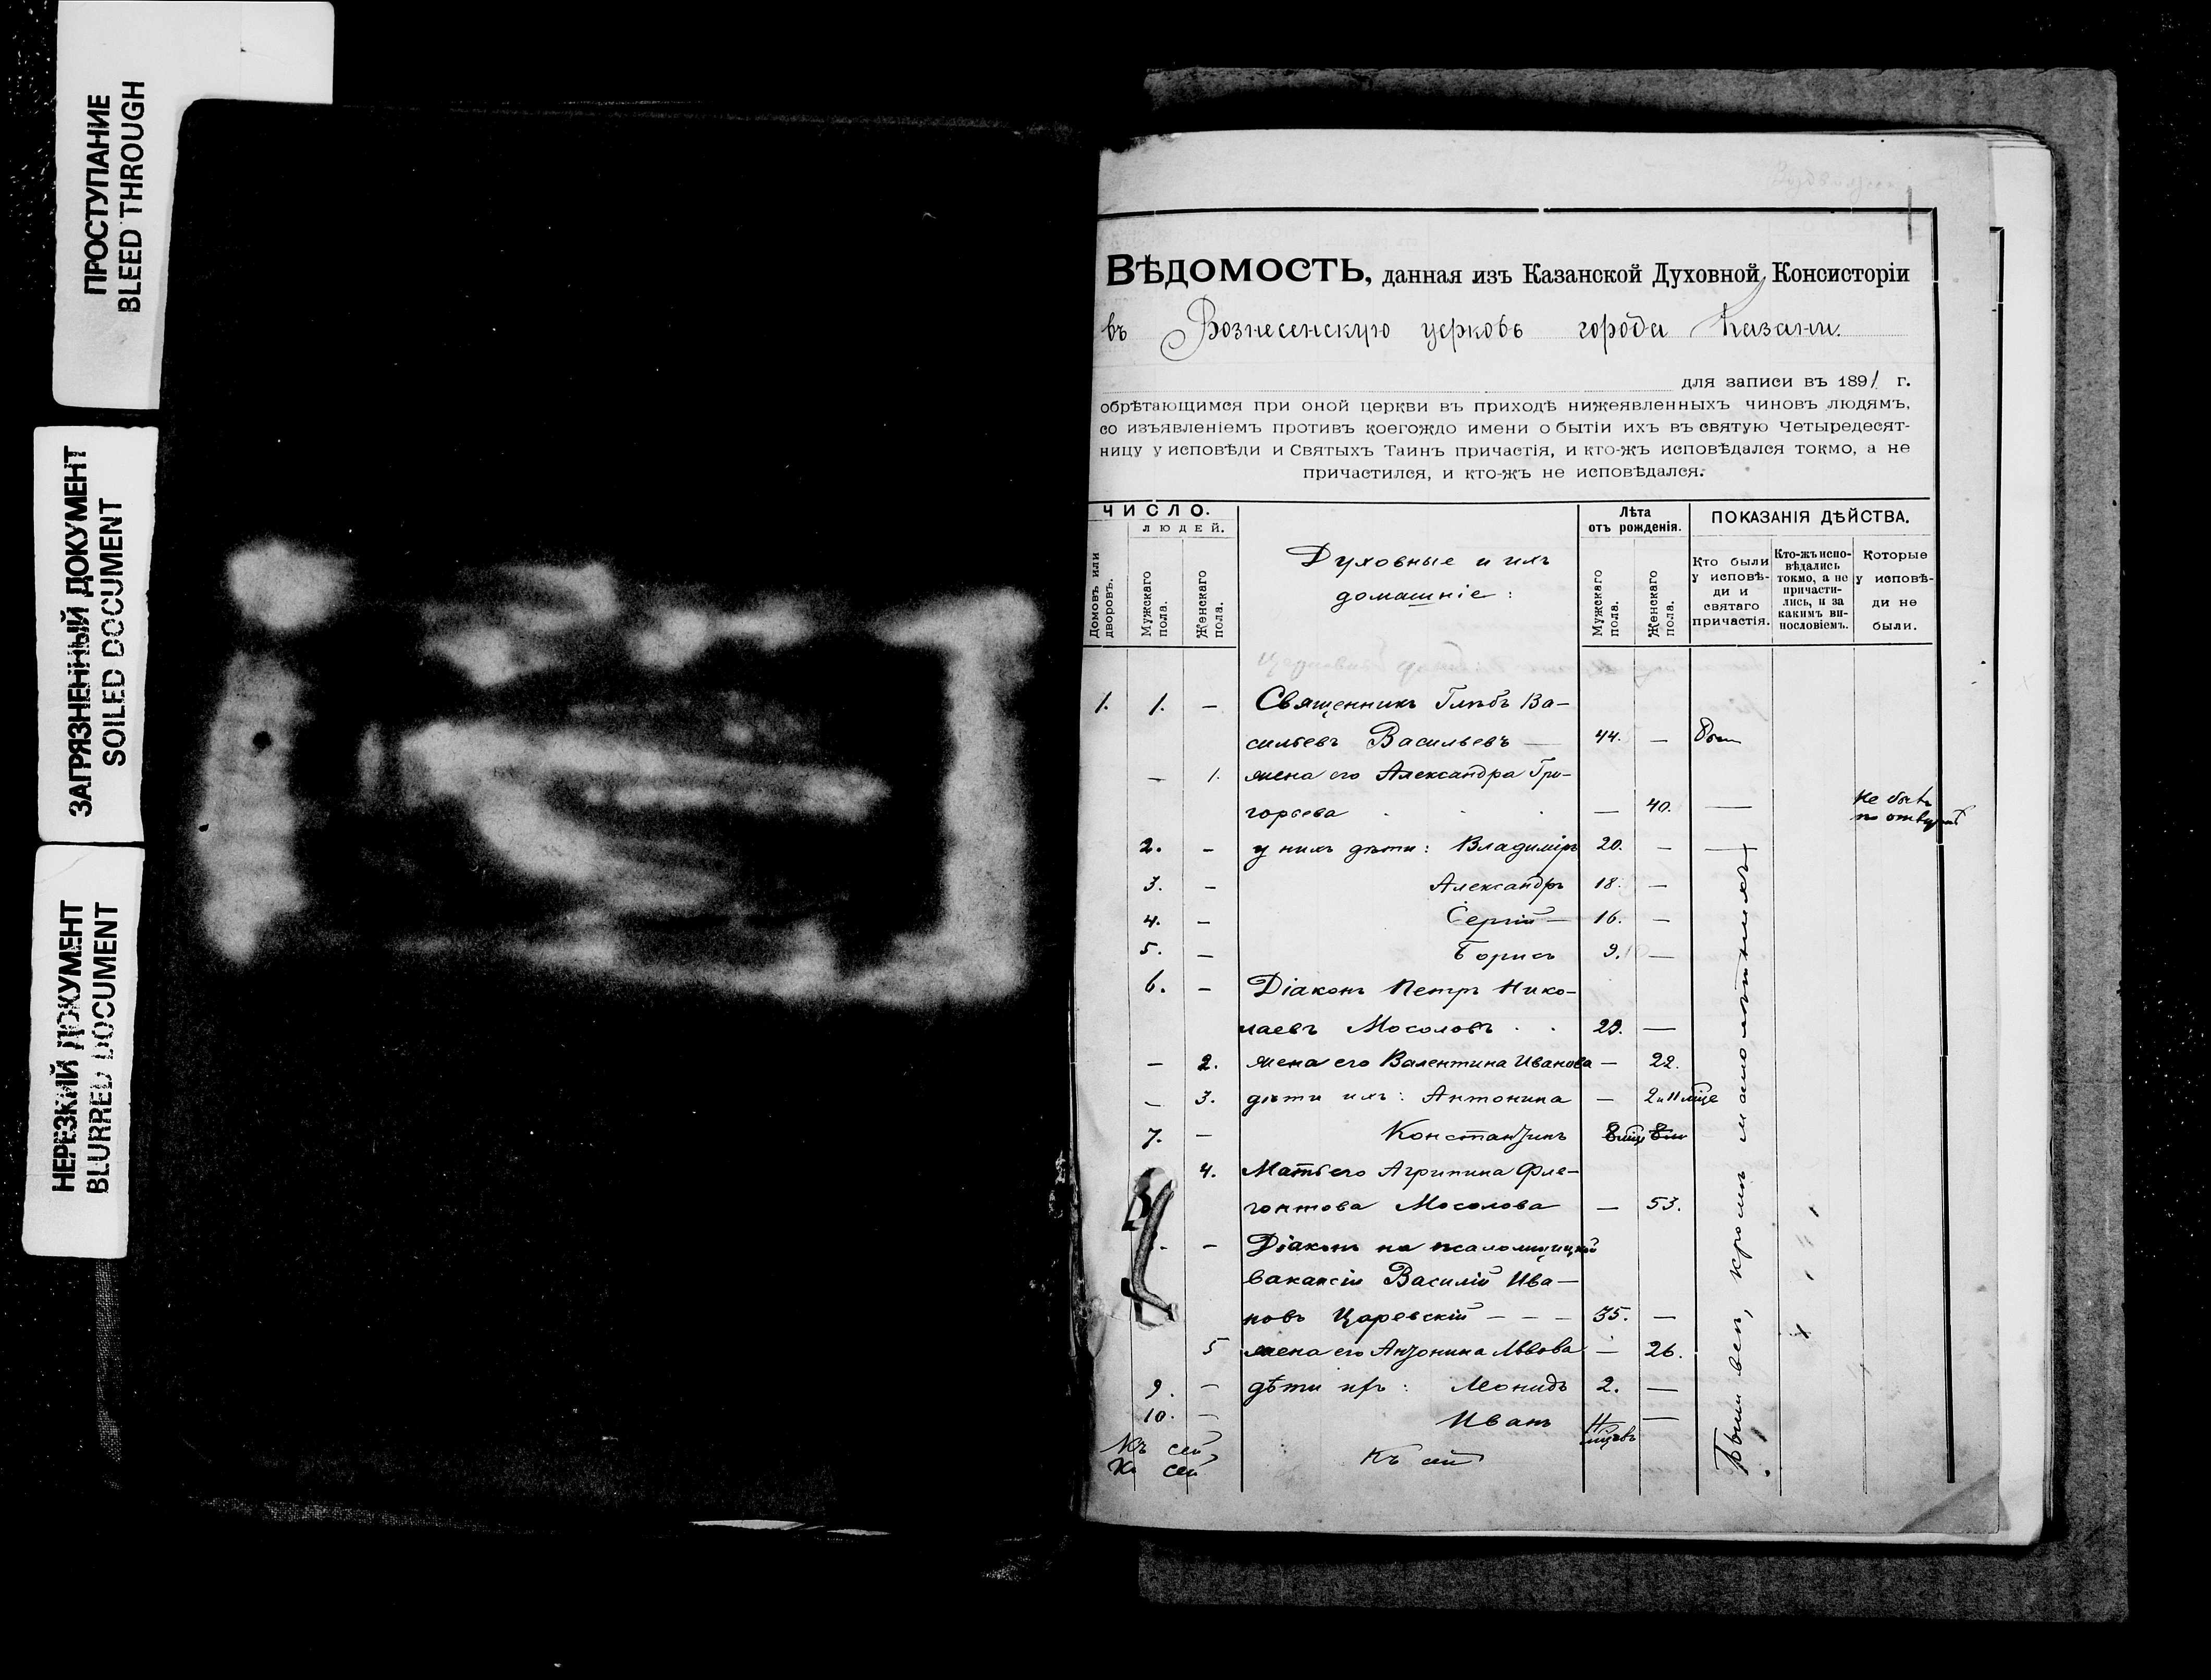 ПРОСТУПАНИЕ
BLEED THROUGH
ЗАГРЯЗНЕННЫЙ ДОКУМЕНТ
SOILED DOCUMENT
НЕРЕЗКИЙ ДОКУМЕНТ
BLURRED DOCUMENT
ВѢДОМОСТЬ, данная изъ Казанской Духовной Консисторіи
въ Вознесенскую церковь города Казани.
для записи въ 1891 г.
обрѣтающимся при оной церкви въ приходѣ нижеявленныхъ чиновъ людямъ,
со изъявленіемъ противъ коегождо имени о бытіи ихъ въ святую Четыредесят-
ницу у исповѣди и Святыхъ Таинъ причастія, и кто-жъ исповѣдался токмо, а не
причастился, и кто-жъ не исповѣдался.
ЧИСЛО.
ЛЮДЕЙ.
Домовъ или дворовъ.
Мужскаго пола.
Женскаго пола.
Духовные и ихъ
домашніе:
Лѣта
отъ рожденія.
Мужскаго пола.
Женскаго пола.
ПОКАЗАНІЯ ДѢЙСТВА.
Кто были
у исповѣ-
ди и
святаго
причастія.
Кто-жъ испо-
вѣдались
токмо, а не
причасти-
лись, и за
какимъ ви-
нословіемъ.
Которые
у исповѣ-
ди не
были.
1. 1. — Священникъ Глѣбъ Ва-
сильевъ Васильевъ — 44. — Былъ
— 1. жена его Александра Гри-
горьева — 40. — не быть
2. - у нихъ дѣти: Владиміръ 20. — —
3. - Александръ 18. —
4. - Сергій — 16. —
5. — Борисъ 9. —
6. - Діаконъ Петръ Нико-
лаевъ Мосоловъ . . 29. —
— 2. жена его Валентина Иванова — 22.
— 3. дѣти ихъ: Антонина — 2 и 11 мѣце
7. — Константинъ
4. Мать его Агрипина Фле-
гонтова Мосолова — 53.
— Діаконъ на псаломщицкой
вакансіи Василій Ива-
новъ Царевскій — — — 35. —
5 жена его Антонина Львова — 26.
9. — дѣти ихъ: Леонидъ 2. —
10. — Иванъ 11 —
мѣцевъ
Къ сей
сей
Къ сей
Были всѣ, кромѣ малолѣтнихъ